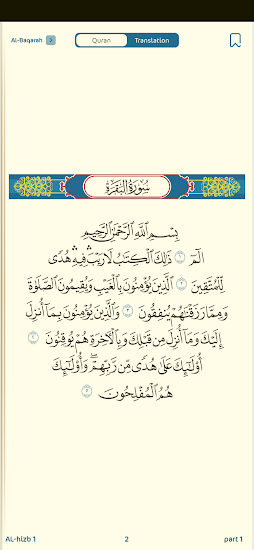 Al-Baqarah
Quran Translation
سُورَةُ البَقَرَةِ
بِسْمِ ٱللَّهِ ٱلرَّحْمَٰنِ ٱلرَّحِيمِ
الٓمٓ ١ ذَٰلِكَ ٱلْكِتَٰبُ لَا رَيْبَ ۛ فِيهِ ۛ هُدًى
لِّلْمُتَّقِينَ ٢ ٱلَّذِينَ يُؤْمِنُونَ بِٱلْغَيْبِ وَيُقِيمُونَ ٱلصَّلَوٰةَ
وَمِمَّا رَزَقْنَٰهُمْ يُنفِقُونَ ٣ وَٱلَّذِينَ يُؤْمِنُونَ بِمَآ أُنزِلَ
إِلَيْكَ وَمَآ أُنزِلَ مِن قَبْلِكَ وَبِٱلْءَاخِرَةِ هُمْ يُوقِنُونَ ٤
أُو۟لَٰٓئِكَ عَلَىٰ هُدًى مِّن رَّبِّهِمْ ۖ وَأُو۟لَٰٓئِكَ
هُمُ ٱلْمُفْلِحُونَ ٥
AL-hizb 1 2 part 1